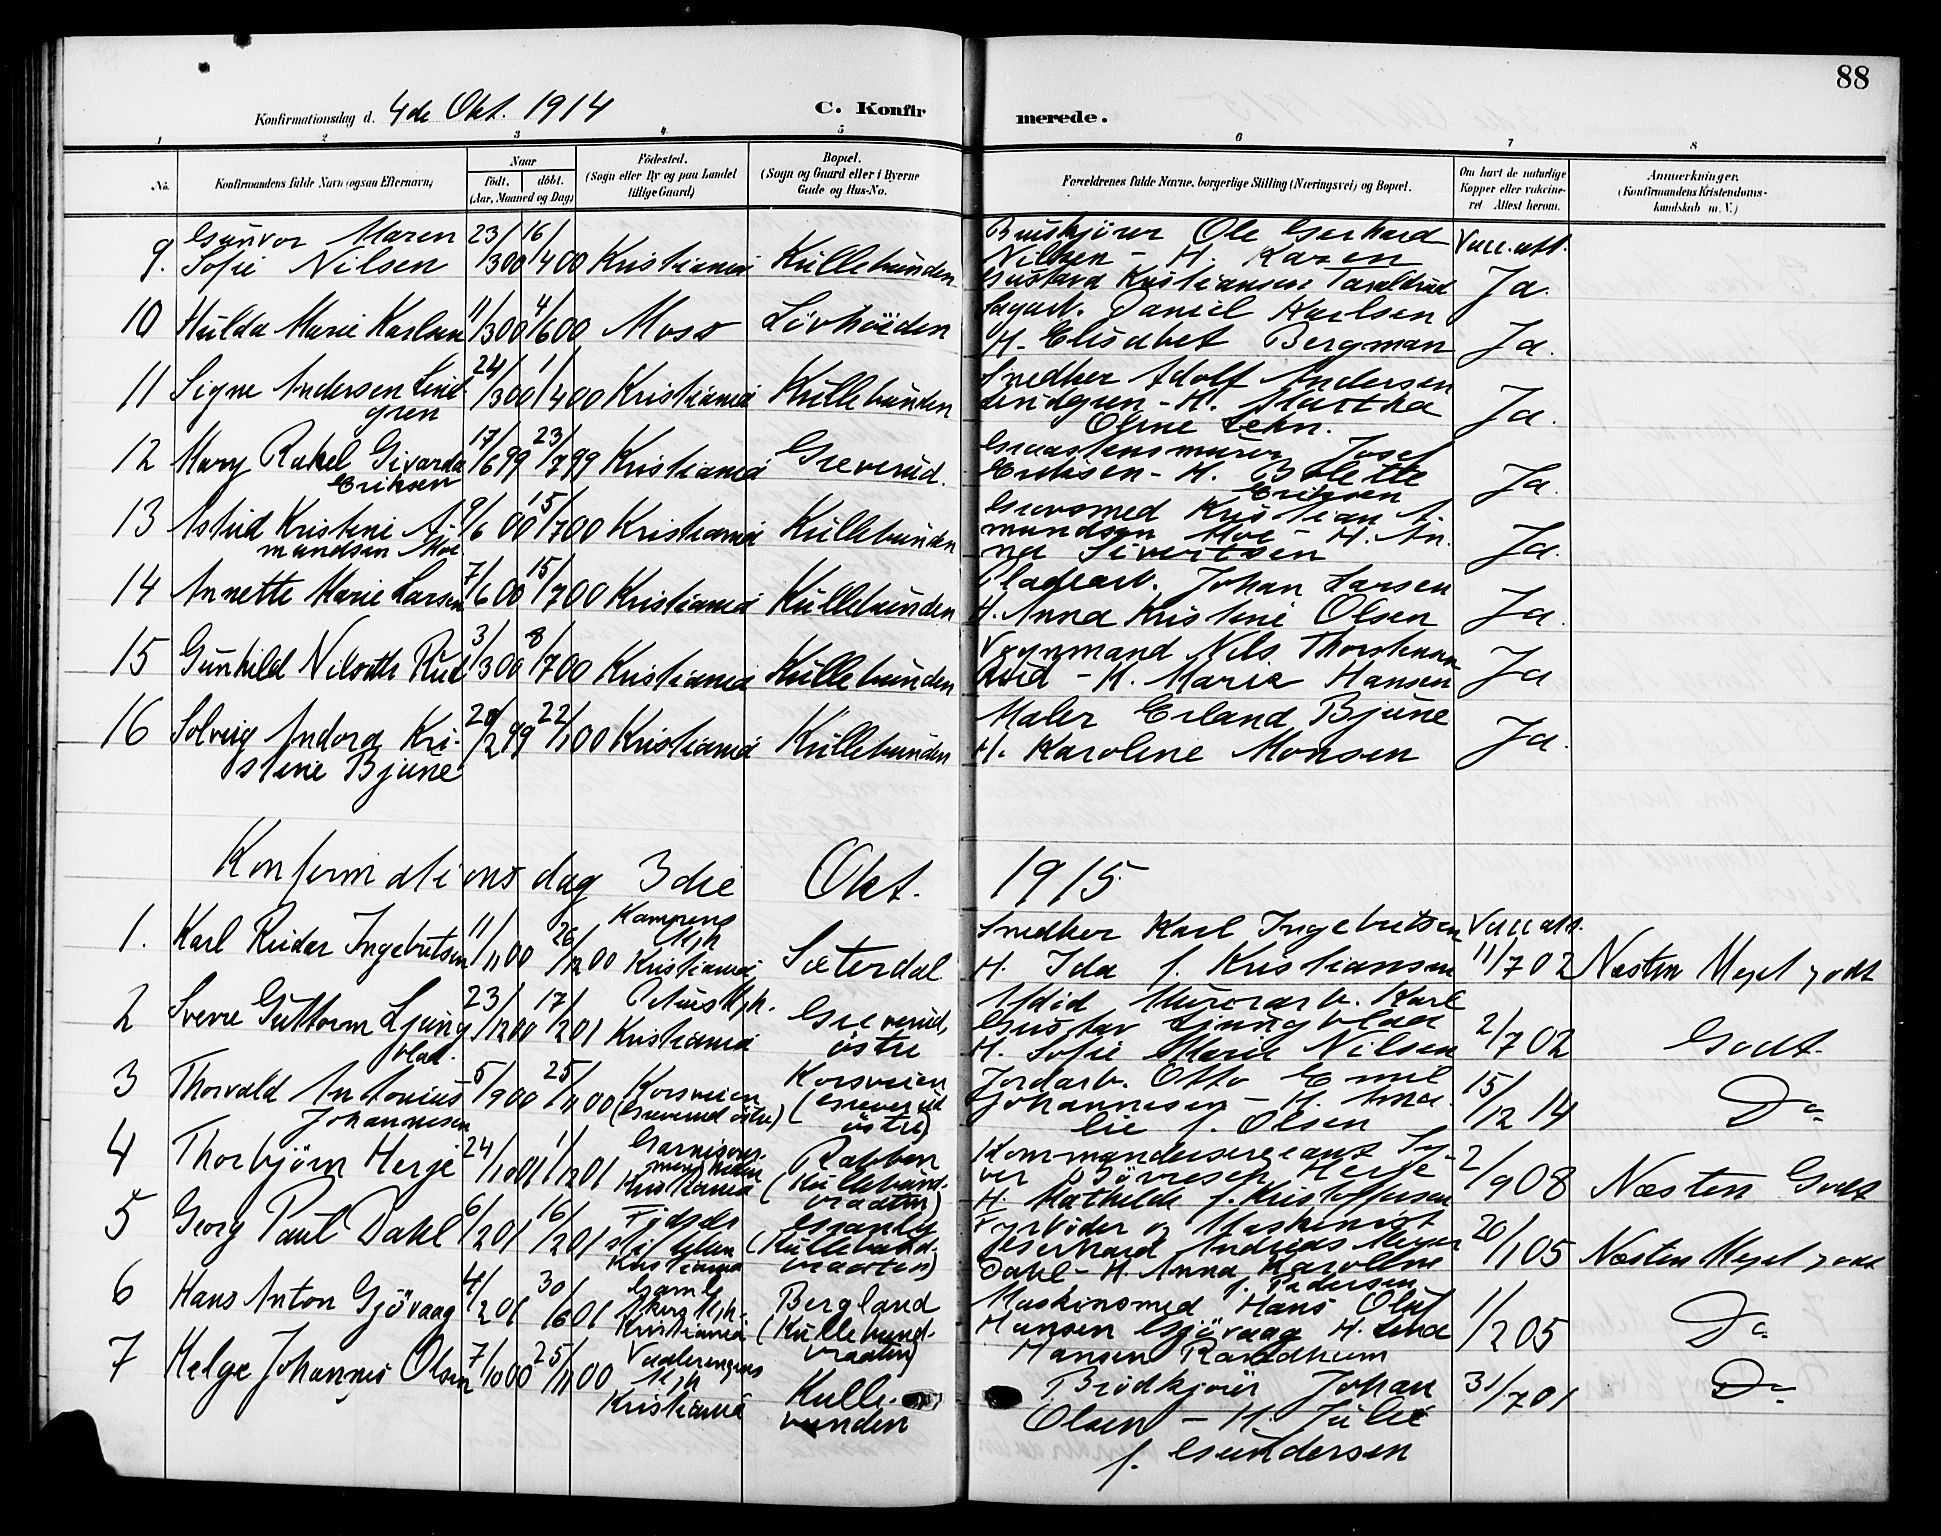 88
Konfirmationsdag d. 4de Okt. 1914 C. Konfirmerede.
1 2 3 4 5 6 7 8
No. Konfirmandens fulde Navn (ogsaa Efternavn) Naar født, døbt. (Aar, Maaned og Dag) Fødested. (Sogn eller By og paa Landet tillige Gaard) Bopæl. (Sogn og Gaard eller i Byerne Gade og Hus-No. Forældrenes fulde Navne, borgerlige Stilling (Næringsvei) og Bopæl. Om havt de naturlige Kopper eller vaccineret Attest herom. Anmerkninger. (Konfirmandens Kristendomskundskab m. V.)
9. Gunvor Maren Sofie Nilsen 23/3 00 16/4 00 Kristiania Kullebunden Ole Gerhard Nilsen - H. Karen Gustava Kristiansen Vacc.att. Ja.
10 Hulda Marie Karlsen 11/3 00 4/6 00 Moss Lövhöiden Sagarb. Daniel Karlsen H. Elisabet Bergman Ja.
11 Signe Andersen Lindgren 24/3 00 1/4 00 Kristiania Kullebunden Snedker Adolf Andersen Lindgren - H. Martha Oline Lehn. Ja.
12 Mary Rakel Givarda Eriksen 17/6 99 23/7 99 Kristiania Greverud. Graastensmurer Josef Eriksen - H. Bolette Eriksen Ja.
13 Astrid Kristine Amundsen Moe 9/6 00 15/7 00 Kristiania Kullebunden Grovsmed Kristian Amundsen Moe - H. Anna Sivertsen Ja.
14 Annette Marie Larsen 7/6 00 15/7 00 Kristiania Kullebunden Pladearb. Johan Larsen H. Anna Kristine Olsen Ja.
15 Gunhild Nilsdtr. Rud 3/3 00 8/7 00 Kristiania Kullebunden Vognmand Nils Thorstensen Rud - H. Marie Hansen Ja
16 Solveig Andora Kristine Bjune 28/2 99 22/1 00 Kristiania Kullebunden Maler Erland Bjune H. Karoline Monsen Ja.
Konfirmationsdag 3die Okt. 1915
1. Karl Reidar Ingebretsen 11/11 00 26/12 00 Kampens Kph Kristiania Sæterdal Snedker Karl Ingebretsen H. Ida f. Kristiansen Vacc att. 11/7 02 Næsten Meget godt
2 Sverre Guttorm Ljungblad. 23/12 00 17/2 01 Petrus Kph. Kristiania Greverud, östre Afdöd Murerarb. Karl Gustav Ljungblad H. Sofie Marie Nilsen 2/7 02 Godt.
3 Thorvald Antonius Johannesen 5/9 00 25/11 00 Korsveien (Greverud östre) Korsveien (Greverud östre) Jordarb. Otto Emil Johannesen - H. Amalie f. Olsen 15/12 14 Do
4 Thorbjörn Herje 24/10 01 1/12 01 Garnisonsmenigheden Kristiania Rabben (Kullebundvraaten) Kommandersergeant Syver Herje H. Mathilde f. Kristoffersen 2/9 08 Næsten Godt
5 Georg Paul Dahl 6/2 01 16/12 01 Födselsstiftelsen Kristiania Granly (Kullebundvraaten) Fyrböder og Maskinist Gerhard Andreas Meyer Dahl - H. Anna Karoline f. Pedersen 20/1 05 Næsten Meget godt
6 Hans Anton Gjövaag 4/2 01 30/6 01 Gaml. Akers Kph. Kristiania Bergland (Kullebundvraaten) Maskinsmed Hans Oluf Hansen Gjövaag H. Lina Hansen 1/2 05 Do
7 Helge Johannes Olsen 7/10 00 25/11 00 Vaalerengens Kph Kristiania Kullebunden Brödkjörer Johan Olsen - H. Julie f. Gundersen 31/7 01 Do